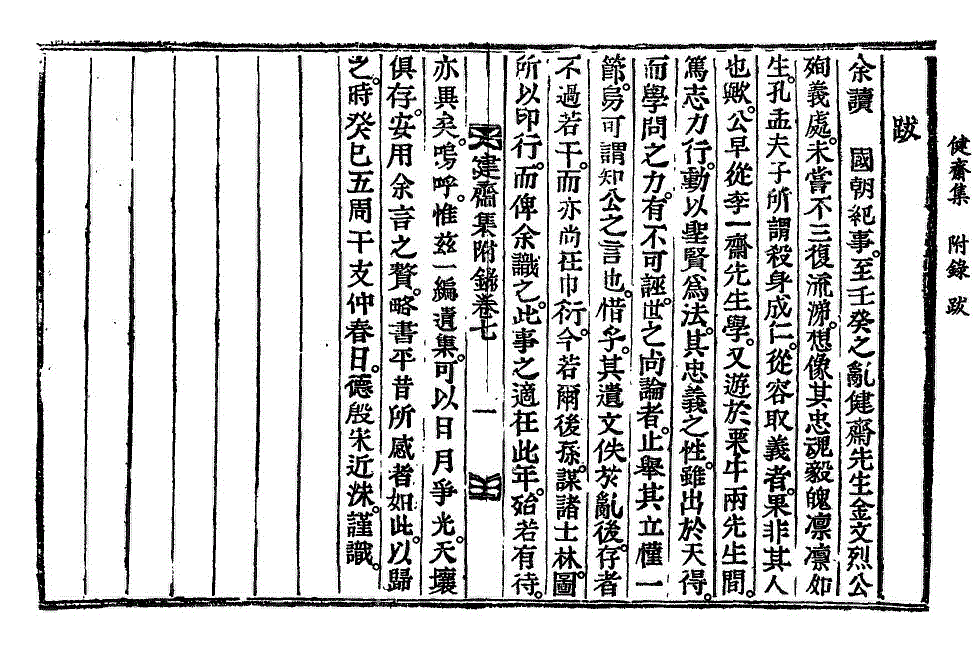 健齋集 附錄 跋
跋
余讀 國朝紀事。至壬癸之亂健齋先生金文烈公
殉義處。未嘗不三復流涕。想像其忠魂毅魄凜凜如
生。孔孟夫子所謂殺身成仁。從容取義者。果非其人
也歟。公早從李一齋先生學。又遊於栗牛兩先生間。
篤志力行。動以聖賢爲法。其忠義之性。雖出於天得。
而學問之力。有不可誣。世之尙論者。止擧其立慬一
節。烏可謂知公之言也。惜乎。其遺文佚於亂後。存者
不過若干。而亦尙在巾衍。今若爾後孫。謀諸士林。圖
所以印行。而俾余識之。此事之適在此年。殆若有待。
健齋集附錄卷七 一
亦異矣。嗚呼。惟玆一編遺集。可以日月爭光。天壤
俱存。安用余言之贅。略書平昔所感者如此。以歸
之。時癸巳五周干支仲春日。德殷宋近洙。謹識。